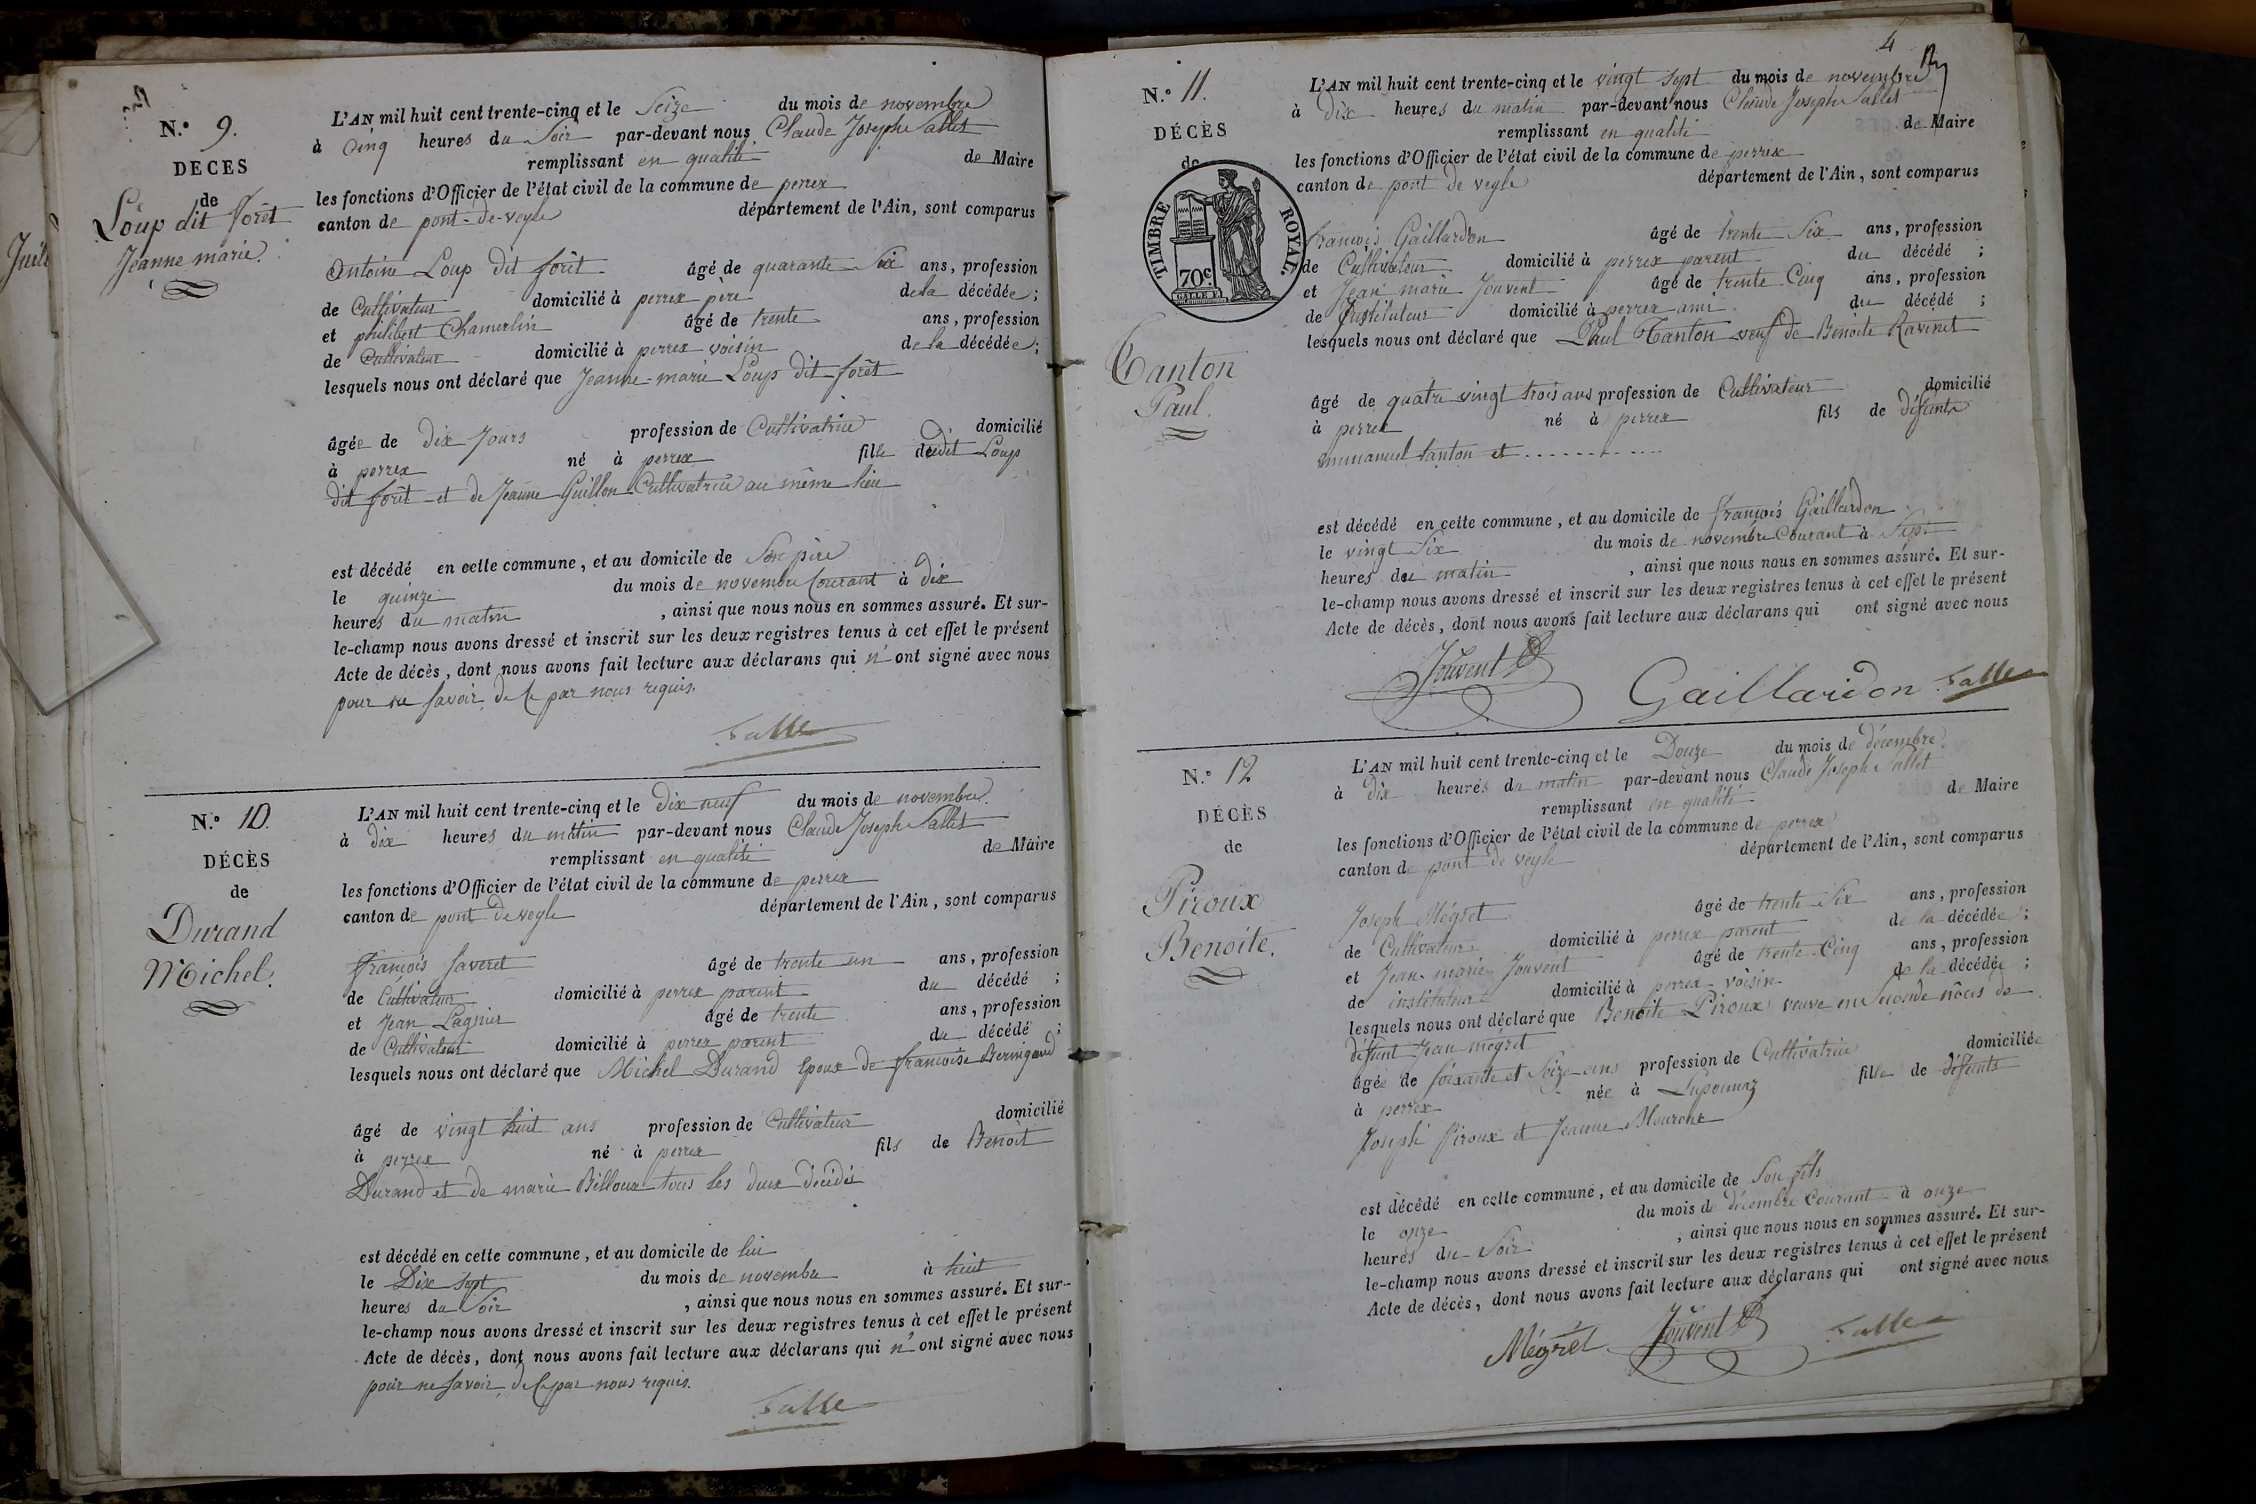 N.° 9.
DECES
de
Loup dit forêt
Jeanne marie.
L'AN mil huit cent trente-cinq et le Seize du mois de novembre
à Cinq heures du Soir par-devant nous Claude Joseph Sallet
remplissant en qualité de Maire
les fonctions d'Officier de l'état civil de la commune de perrex
canton de pont-de-veyle département de l'Ain, sont comparus
Antoine Loup dit forêt âgé de quarante Six ans, profession
de Cultivateur domicilié à perrex père de la décédée ;
et philibert Chamerlin âgé de trente ans, profession
de Cultivateur domicilié à perrex voisin de la décédée ;
lesquels nous ont déclaré que Jeanne-marie Loup dit forêt
âgée de dix Jours profession de Cultivatrice domicilié
à perrex né à perrex fille dudit Loup
dit forêt et de Jeanne Guillon Cultivatrice au même lieu
est décédé en cette commune, et au domicile de Son père
le quinze du mois de novembre Courant à dix
heures du matin , ainsi que nous nous en sommes assuré. Et sur-
le-champ nous avons dressé et inscrit sur les deux registres tenus à cet effet le présent
Acte de décès, dont nous avons fait lecture aux déclarans qui n'ont signé avec nous
pour ne savoir, de Ce par nous requis.
N.° 10.
DÉCÈS
de
Durand
Michel.
L'AN mil huit cent trente-cinq et le dix neuf du mois de novembre.
à dix heures du matin par-devant nous Claude Joseph Sallet
remplissant en qualité de Maire
les fonctions d'Officier de l'état civil de la commune de perrex
canton de pont de veyle département de l'Ain, sont comparus
françois faveret âgé de trente un ans, profession
de Cultivateur domicilié à perrex parent du décédé ;
et Jean Lagnier âgé de trente ans, profession
de Cultivateur domicilié à perrex parent du décédé ;
lesquels nous ont déclaré que Michel Durand Epoux de francoise
âgé de vingt huit ans profession de Cultivateur domicilié
à perrex né à perrex fils de Benoît
Durand et de marie Billoux tous les deux décédés
est décédé en cette commune, et au domicile de lui
le Dix Sept du mois de novembre à huit
heures du Soir , ainsi que nous nous en sommes assuré. Et sur-
le-champ nous avons dressé et inscrit sur les deux registres tenus à cet effet le présent
Acte de décès, dont nous avons fait lecture aux déclarans qui n'ont signé avec nous
pour ne Savoir, de Ce par nous requis.
4
N.° 11.
DÉCÈS
de
TIMBRE ROYAL.
70c.
Tanton
Paul.
L'AN mil huit cent trente-cinq et le vingt Sept du mois de novembre
à dix heures du matin par-devant nous Claude Joseph Sallet
remplissant en qualité de Maire
les fonctions d'Officier de l'état civil de la commune de perrex
canton de pont de veyle département de l'Ain, sont comparus
françois Gaillardon âgé de trente Six ans, profession
de Cultivateur domicilié à perrex parent du décédé ;
et Jean marie Jouvent âgé de trente Cinq ans, profession
de Instituteur domicilié à perrex ami du décédé ;
lesquels nous ont déclaré que Paul Tanton veuf de Benoite Ravinet
âgé de quatre vingt trois ans profession de Cultivateur domicilié
à perrex né à perrex fils de défunts
emmanuel tanton et . . . . . . . . . . . .
est décédé en cette commune, et au domicile de françois Gaillardon
le vingt Six du mois de novembre Courant à Sept
heures du matin , ainsi que nous nous en sommes assuré. Et sur-
le-champ nous avons dressé et inscrit sur les deux registres tenus à cet effet le présent
Acte de décès, dont nous avons fait lecture aux déclarans qui ont signé avec nous
Jouvent Gaillardon
N.° 12
DÉCÈS
de
Piroux
Benoite.
L'AN mil huit cent trente-cinq et le Douze du mois de décembre
à dix heures du matin par-devant nous Claude Joseph Sallet
remplissant en qualité de Maire
les fonctions d'Officier de l'état civil de la commune de perrex
canton de pont de veyle département de l'Ain, sont comparus
Joseph Mégret âgé de trente Six ans, profession
de Cultivateur domicilié à perrex parent de la décédée ;
et Jean-marie Jouvent âgé de trente-Cinq ans, profession
de instituteur domicilié à perrex voisin de la décédée ;
lesquels nous ont déclaré que Benoite Piroux veuve en Seconde nôces de
défunt Jean mégret
âgée de Soixante et Seize ans profession de Cultivatrice domiciliée
à perrex née à fille de défunts
Joseph Piroux et Jeanne
est décédé en cette commune, et au domicile de Son fils
le onze du mois de décembre Courant à onze
heures du Soir , ainsi que nous nous en sommes assuré. Et sur-
le-champ nous avons dressé et inscrit sur les deux registres tenus à cet effet le présent
Acte de décès, dont nous avons fait lecture aux déclarans qui ont signé avec nous
Mégret Jouvent